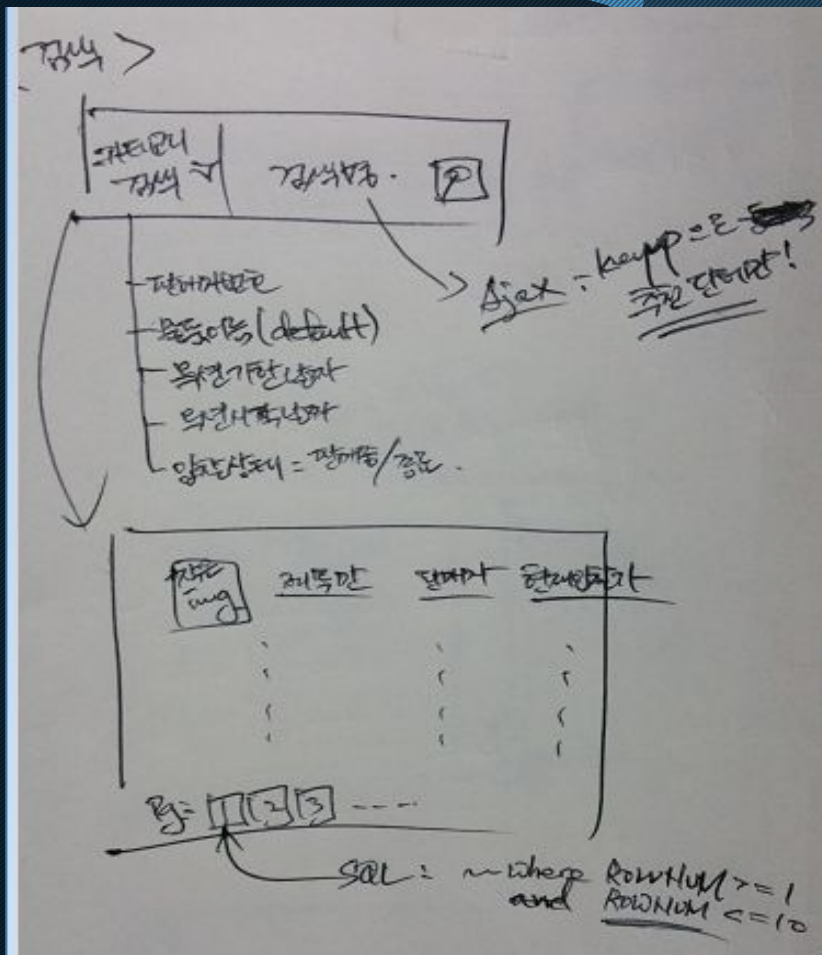 검색 >
카테고리
검색
검색창.
Ajax : keyup으로
추천 단어만!
판매자번호
물품이름 (default)
옥션기한날짜
옥션시작날짜
입찰상태 = 판매중/종료.
img
제목만 판매자 현재입찰가
Pg= 1 2 3 ----
SQL : ~ where ROWNUM >= 1
and ROWNUM <= 10